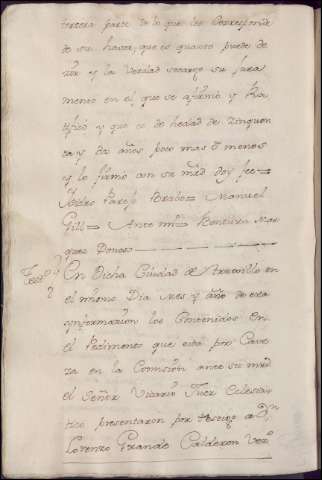 tercera parte de lo que les Corresponde
de su hasta, que es quanto puede de
zir y la Verdad so cargo su Jura
mento en el que se afirmó y Ra
tificó y que es de hedad de Zinquen
ta y dos años poco mas ô menos
y lo firmó con su mrd doy fee=
Pares Brabo= Manuel
Gill= Ante mi= Bentura Mar
quez Donoso
Testo. En Dicha Ciudad de Truxillo en
el mismo Dia mes y año de esta
ynformazion los Contenidos En
el Pedimento que está por Cave
za en la Comision ante su mrd
el Señor Vicario Juez Eclesias
tico presentaron por testigo a Dn
Lorenzo Grande Calderon Vezo